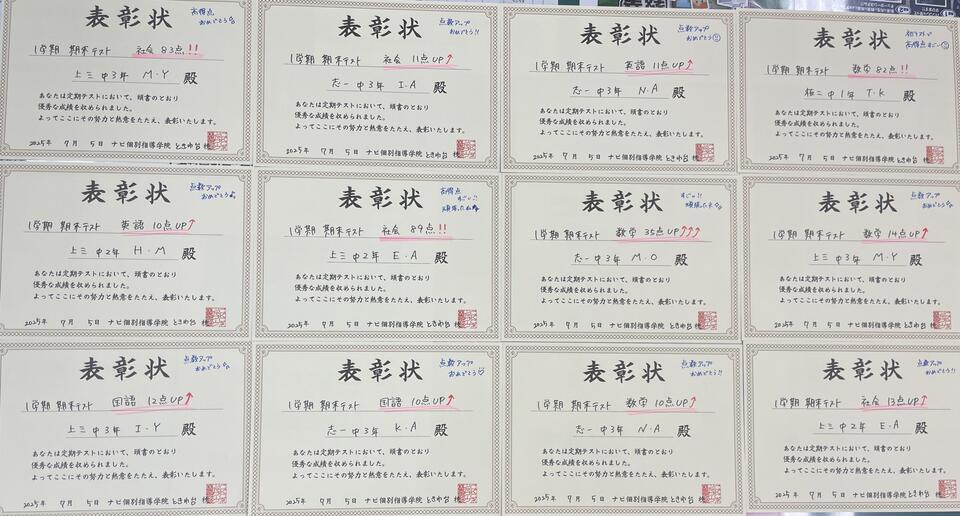 表彰状
高得点
おめでとう
1学期 期末テスト 社会 83点!!
上三中3年 M・Y 殿
あなたは定期テストにおいて、頭書のとおり
優秀な成績を収められました。
よってここにその努力と熱意をたたえ、表彰いたします。
2025年 7月 5日 ナビ個別指導学院 ときわ台 校
表彰状
点数アップ
おめでとう!!
1学期 期末テスト 社会 11点UP↑
志一中3年 I・A 殿
あなたは定期テストにおいて、頭書のとおり
優秀な成績を収められました。
よってここにその努力と熱意をたたえ、表彰いたします。
2025年 7月 5日 ナビ個別指導学院 ときわ台 校
表彰状
点数アップ
おめでとう
1学期 期末テスト 英語 11点UP↑
志一中3年 N・A 殿
あなたは定期テストにおいて、頭書のとおり
優秀な成績を収められました。
よってここにその努力と熱意をたたえ、表彰いたします。
2025年 7月 5日 ナビ個別指導学院 ときわ台 校
表彰状
初テストで
高得点すごい
1学期 期末テスト 数学 82点!!
桜二中1年 T・K 殿
あなたは定期テストにおいて、頭書のとおり
優秀な成績を収められました。
よってここにその努力と熱意をたたえ、表彰いたします。
2025年 7月 5日 ナビ個別指導学院 ときわ台 校
表彰状
点数アップ
おめでとう
1学期 期末テスト 英語 10点UP↑
上三中2年 H・M 殿
あなたは定期テストにおいて、頭書のとおり
優秀な成績を収められました。
よってここにその努力と熱意をたたえ、表彰いたします。
2025年 7月 5日 ナビ個別指導学院 ときわ台 校
表彰状
高得点
すごい!!
頑張ったね
1学期 期末テスト 社会 89点!!
上三中2年 E・A 殿
あなたは定期テストにおいて、頭書のとおり
優秀な成績を収められました。
よってここにその努力と熱意をたたえ、表彰いたします。
2025年 7月 5日 ナビ個別指導学院 ときわ台 校
表彰状
すごい!!
頑張った
1学期 期末テスト 数学 35点UP↑↑↑
志一中3年 M・O 殿
あなたは定期テストにおいて、頭書のとおり
優秀な成績を収められました。
よってここにその努力と熱意をたたえ、表彰いたします。
2025年 7月 5日 ナビ個別指導学院 ときわ台 校
表彰状
点数アップ
おめでとう
1学期 期末テスト 数学 14点UP↑
上三中3年 M・Y 殿
あなたは定期テストにおいて、頭書のとおり
優秀な成績を収められました。
よってここにその努力と熱意をたたえ、表彰いたします。
2025年 7月 5日 ナビ個別指導学院 ときわ台 校
表彰状
点数アップ
おめでとう
1学期 期末テスト 国語 12点UP↑
上三中3年 I・Y 殿
あなたは定期テストにおいて、頭書のとおり
優秀な成績を収められました。
よってここにその努力と熱意をたたえ、表彰いたします。
2025年 7月 5日 ナビ個別指導学院 ときわ台 校
表彰状
点数アップ
おめでとう♡
1学期 期末テスト 国語 10点UP↑
志一中3年 K・A 殿
あなたは定期テストにおいて、頭書のとおり
優秀な成績を収められました。
よってここにその努力と熱意をたたえ、表彰いたします。
2025年 7月 5日 ナビ個別指導学院 ときわ台 校
表彰状
点数アップ
おめでとう!!
1学期 期末テスト 数学 10点UP↑
志一中3年 N・A 殿
あなたは定期テストにおいて、頭書のとおり
優秀な成績を収められました。
よってここにその努力と熱意をたたえ、表彰いたします。
2025年 7月 5日 ナビ個別指導学院 ときわ台 校
表彰状
点数アップ
おめでとう!!
1学期 期末テスト 社会 13点UP↑
上三中2年 E・A 殿
あなたは定期テストにおいて、頭書のとおり
優秀な成績を収められました。
よってここにその努力と熱意をたたえ、表彰いたします。
2025年 7月 5日 ナビ個別指導学院 ときわ台 校